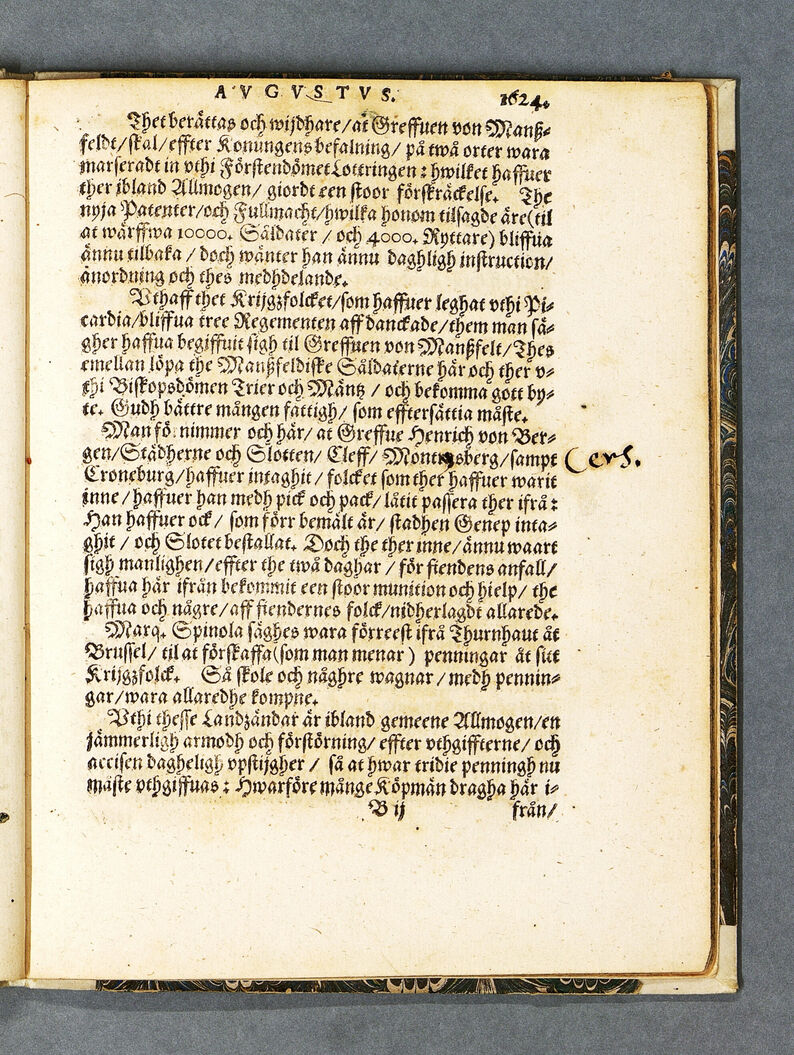 AVGVSTVS. 1624.
Thet berättas och wijdhare/at Greffuen von Manß-
feldt/skal/effter Konungens befalning/ på twå orter wara
marseradt in vthi Förstendömet Lottringen : hwilket haffuer
ther ibland Allmogen/ giordt een stoor förskräckelse. The
nyja Patenter/och Fullmacht/hwilka honom tilsagde äre(til
at wärffwa 10000. Såldater / och 4000. Ryttare) bliffua
ännu tilbaka / doch wänter han ännu daghligh instruction/
anordning och thes medhdelande.
Vthaff thet Krijgzfolcket/som haffuer leghat vthi Pi-
cardia/bliffua tree Regementen aff danckade/them man sä-
gher haffua begiffuit sigh til Greffuen von Manßfelt/Thes
emellan löpa the Manßfeldiske Såldaterne här och ther v-
thi Biskopsdömen Trier och Mäntz / och bekomma gott by-
te. Gudh bättre mången fattigh/ som efftersättia måste.
Man förnimmer och här/ at Greffue Henrich von Ber-
gen/Städherne och Slotten/ Cleff/ Montersberg/sampt (ers.
Croneburg/haffuer intaghit / folcket som ther haffuer warit
inne / haffuer han medh pick och pack/ låtit passera ther ifrå :
Han haffuer ock/ som förr bemält är/ stadhen Genep inta-
ghit / och Slotet bestallat. Doch the ther inne/ännu waart
sigh manlighen/effter the twå daghar / för fiendens anfall/
haffua här ifrån bekommit een stoor munition och hielp/ the
haffua och någre/aff fiendernes folck/nidherlagdt allarede.
Marq. Spinola säghes wara förreest ifrå Thurnhaut åt
Brussel/ til at förskaffa(som man menar ) penningar åt sitt
Krijgzfolck. Så skole och någhre wagnar/medh pennin-
gar/wara allaredhe kompne.
Vthi thesse Landzändar är ibland gemeene Allmogen/en
jämmerligh armodh och förstörning/ effter vthgiffterne/ och
accisen dagheligh vpstijgher / så at hwar tridie penningh nu
måste vthgiffuas : Hwarföre månge Köpmän dragha här i-
B ij från/